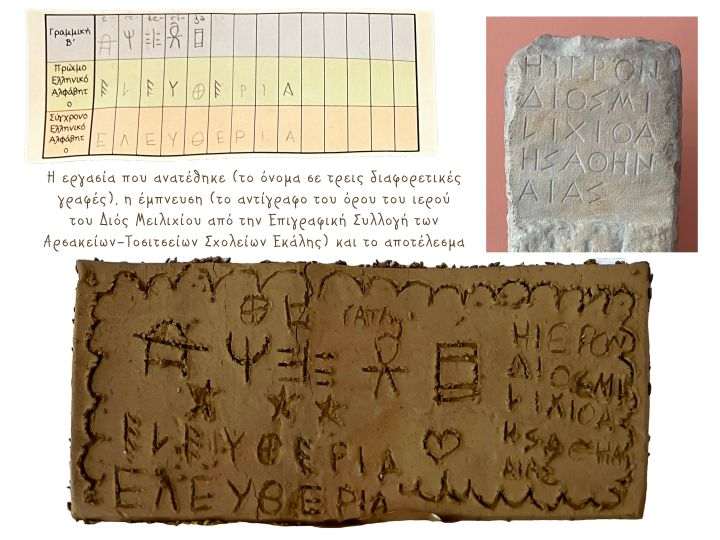 Γραμμική
Β'
Πρώιμο
Ελληνικό
Αλφάβητ
ο
Σύγχρονο
Ελληνικό
Αλφάβητ
ο
Ε Λ Ε Υ Θ Ε Ρ Ι Α
ΗΙΕΡΟΝ
ΔΙΟΣΜΙ
ΛΙΧΙΟΑ
ΗΣΑΘΗΝ
ΑΙΑΣ
Η εργασία που ανατέθηκε (το όνομα σε τρεις διαφορετικές
γραφές), η έμπνευση (το αντίγραφο του όρου του ιερού
του Διός Μειλιχίου από την Επιγραφική Συλλογή των
Αρσακείων-Τοσιτσείων Σχολείων Εκάλης) και το αποτέλεσμα
ΗΙΕΡΟΝ
ΔΙΟΣΜΙ
ΛΙΧΙΟΑ
ΗΣΑΘΗΝ
ΑΙΑΣ
ΕΛΕΥΘΕΡΙΑ